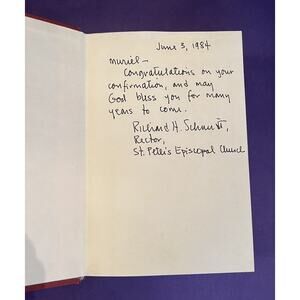 June 3, 1984
Muriel –
Congratulations on your
confirmation, and may
God bless you for many
years to come.
Richard H.
Rector,
St. Peter's Episcopal Church